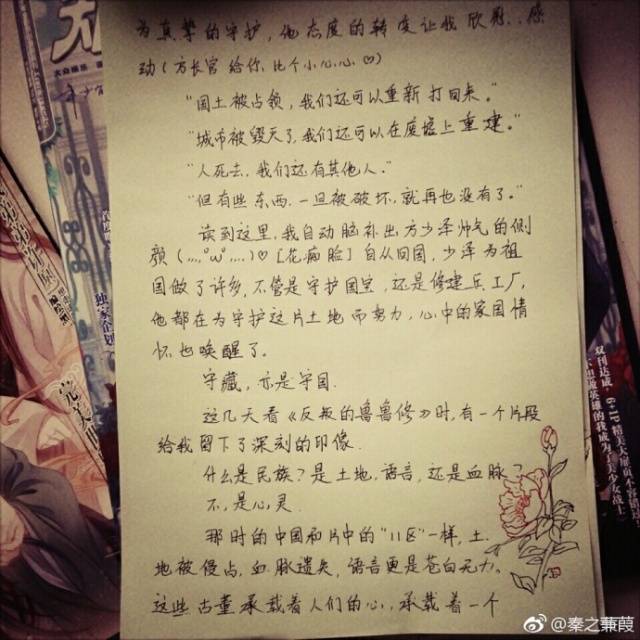 为真挚的守护,他态度的转变让我欣慰、感
动(方长官给你比个小心心♡)
“国土被占领,我们还可以重新打回来。”
“城市被毁灭了,我们还可以在废墟上重建。”
“人死去,我们还有其他人。”
“但有些东西,一旦被破坏,就再也没有了。”
读到这里,我自动脑补出方少泽帅气的侧
颜(,,,,°ω°,,,,)♡[花痴脸]自从回国,少泽为祖
国做了许多,不管是守护国宝,还是修建兵工厂,
他都在为守护这片土地而努力,心中的家国情
怀也唤醒了。
守藏,亦是守国.
这几天看《反叛的鲁鲁修》时,有一个片段
给我留下了深刻的印像.
什么是民族?是土地,语言,还是血脉?
不,是心灵.
那时的中国和片中的“11区”一样,土
地被侵占,血脉遗失,语言更是苍白无力。
这些古董承载着人们的心,承载着一个
大众娱乐
独家企划
完美
双刊达成
6+1P精美大扉页
@秦之蒹葭